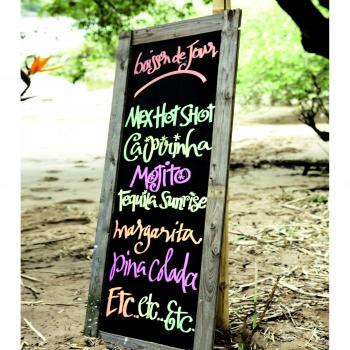 boisson de Jour
Mex Hot Shot
Caipirinha
Mojito
Tequila Sunrise
margarita
Pina Colada
Etc..etc..Etc..